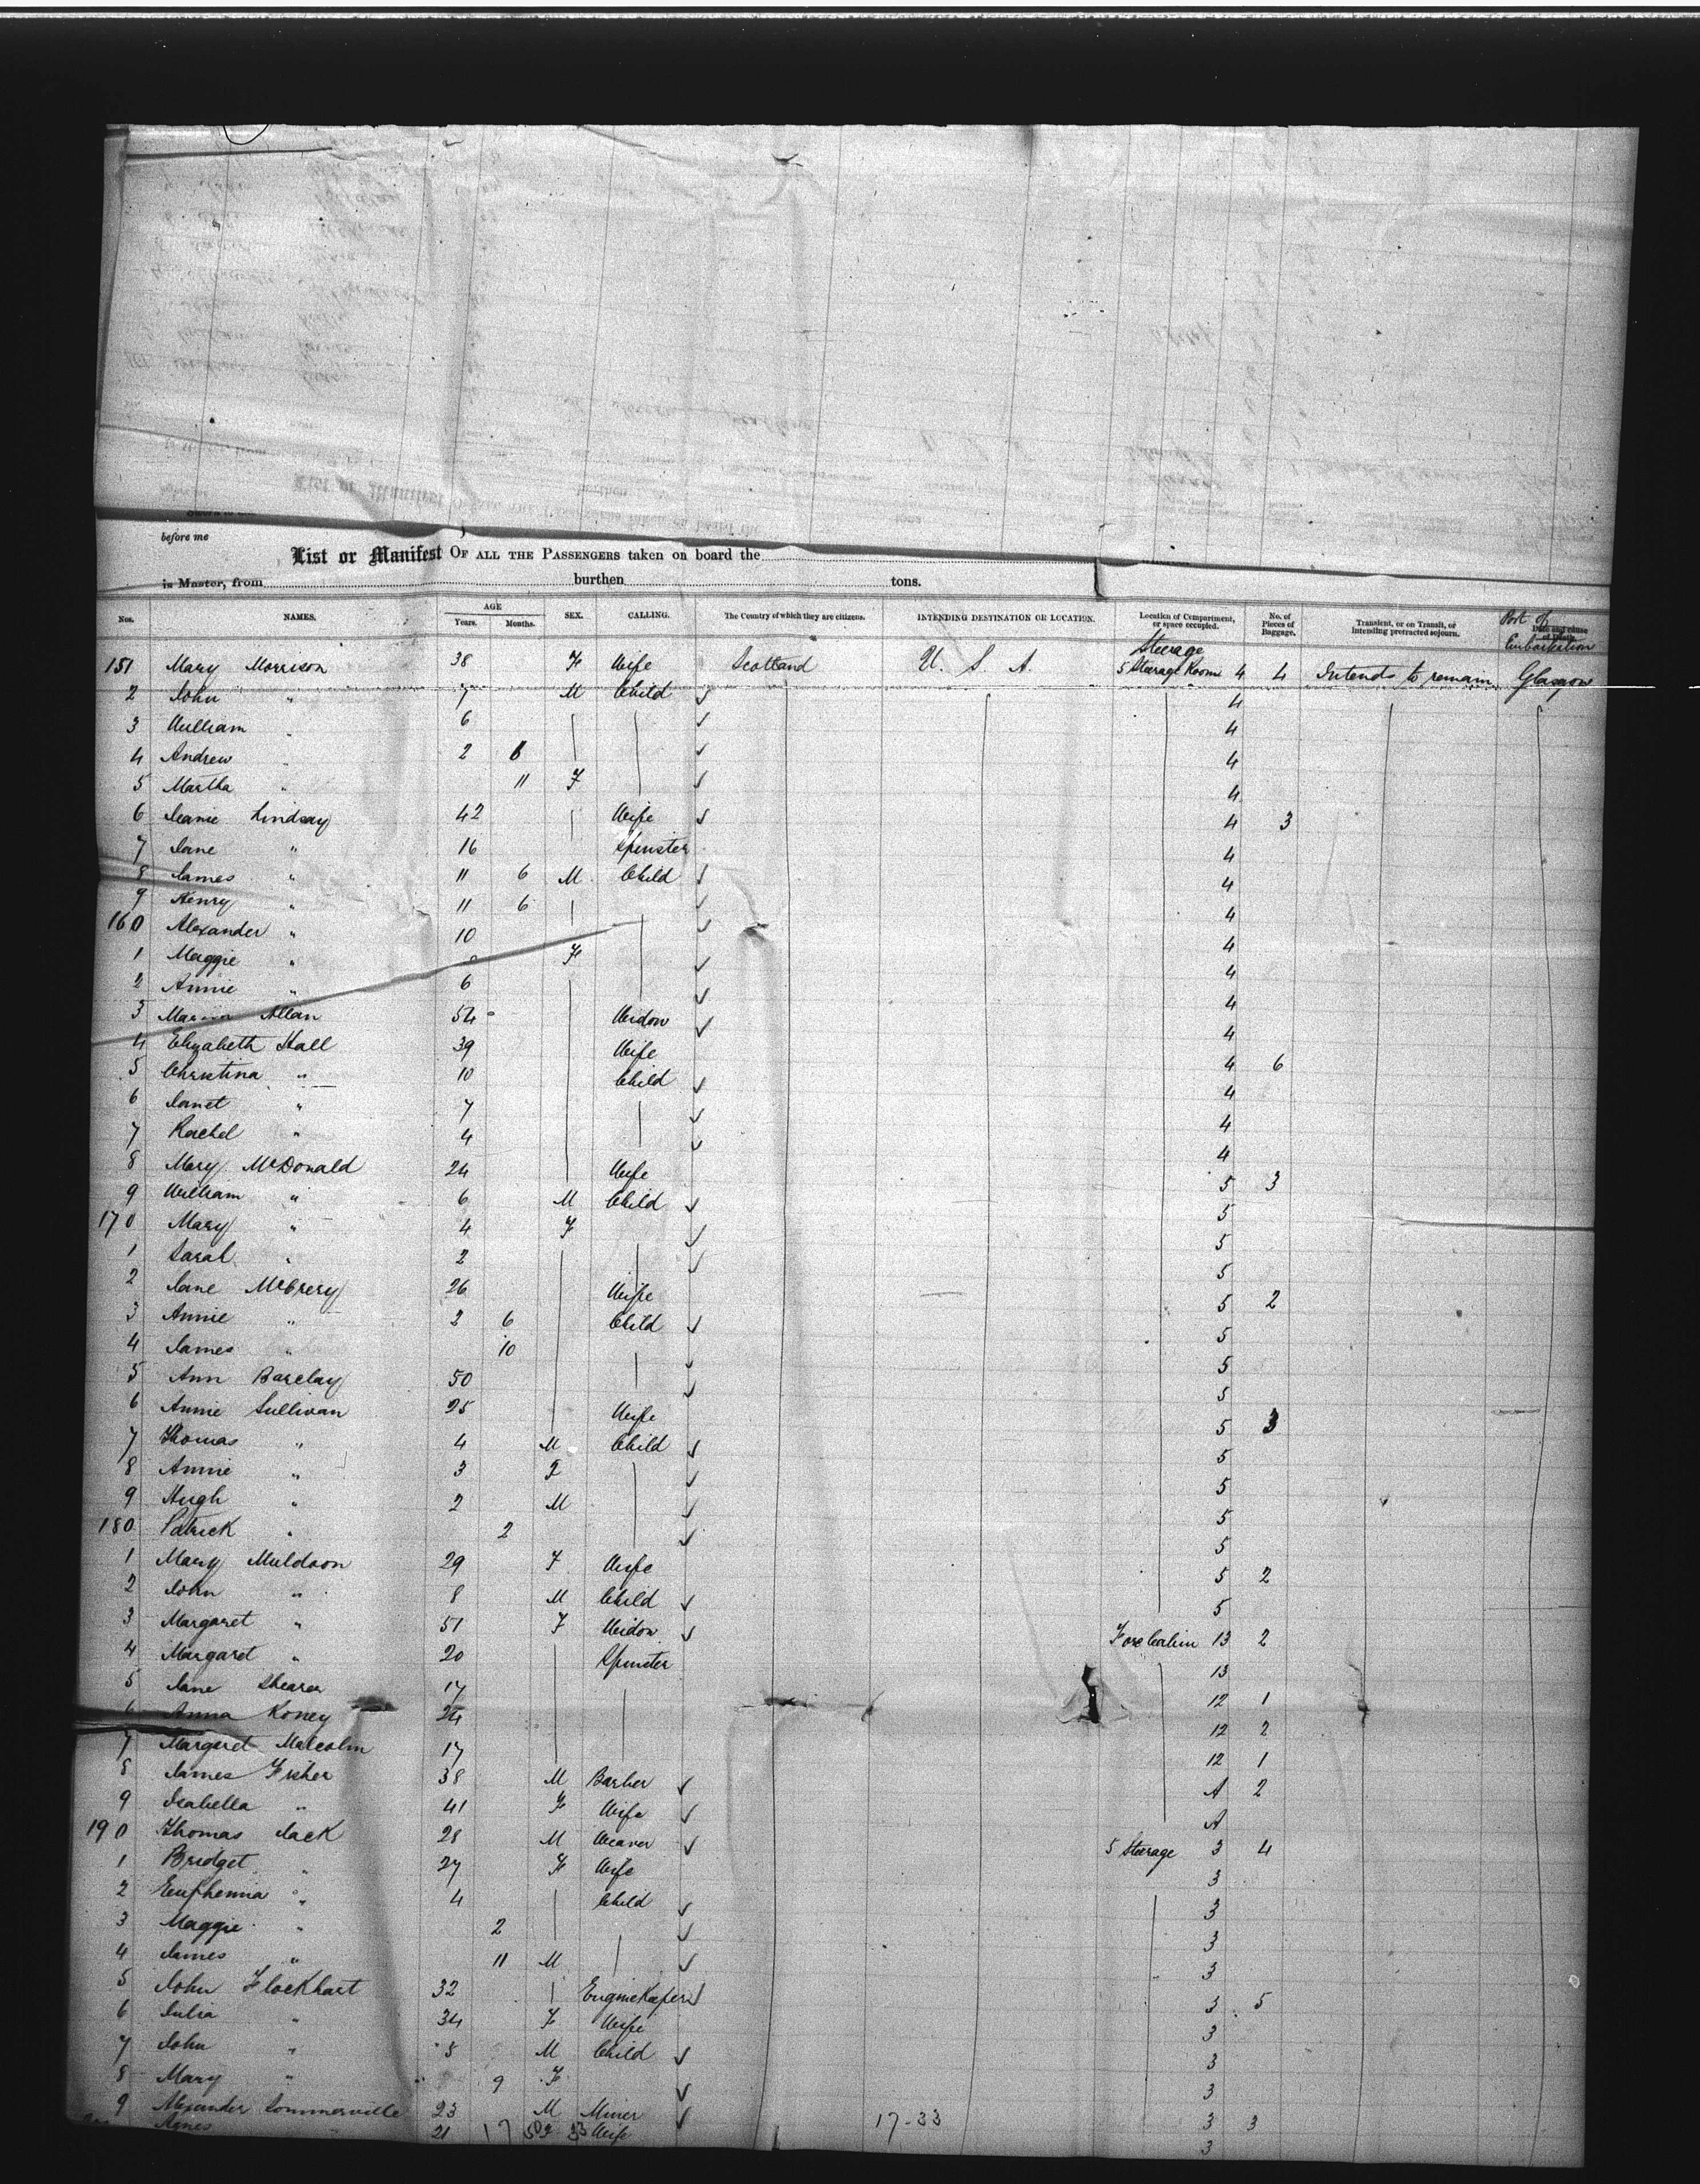 before me
List or Manifest OF ALL THE PASSENGERS taken on board the
is Master, from burthen tons.
Nos. NAMES. AGE Years. Months. SEX. CALLING. The Country of which they are citizens. INTENDING DESTINATION OR LOCATION. Location of Compartment, or space occupied. No. of Pieces of Baggage. Transient, or on Transit, or intending protracted sojourn. Date and cause of Death. Port of Embarkation
Steerage
151 Mary Morrison 38 F Wife Scotland U. S. A. 5 Steerage Room 4 4 Intends to remain Glasgow
2 John " 7 M Child ✓ 4
3 William " 6 ✓ 4
4 Andrew " 2 6 ✓ 4
5 Martha " 11 F ✓ 4
6 Jeanie Lindsay 42 Wife ✓ 4 3
7 Jane " 16 Spinster 4
8 James " 11 6 M Child ✓ 4
9 Henry " 11 6 ✓ 4
160 Alexander " 10 ✓ 4
1 Maggie " F ✓ 4
2 Annie " 6 ✓ 4
3 Allan 54 Widow ✓ 4
4 Elizabeth Hall 39 Wife 4 6
5 Christina " 10 Child ✓ 4
6 Janet " 7 ✓ 4
7 Rachel " 4 ✓ 4
8 Mary McDonald 24 Wife 5 3
9 William " 6 M Child ✓ 5
170 Mary " 4 F ✓ 5
1 Sarah " 2 ✓ 5
2 Jane McCrery 26 Wife 5 2
3 Annie " 2 6 Child ✓ 5
4 James " 10 ✓ 5
5 Ann Barclay 50 ✓ 5
6 Annie Sullivan 25 Wife 5 3
7 Thomas " 4 M Child ✓ 5
8 Annie " 3 F ✓ 5
9 Hugh " 2 M ✓ 5
180 Patrick " 2 ✓ 5
1 Mary Muldoon 29 F Wife 5 2
2 John " 8 M Child ✓ 5
3 Margaret " 51 F Widow ✓ Fore Cabin 13 2
4 Margaret " 20 Spinster 13
5 Jane Shearer 17 12 1
6 Anna Koney 24 12 2
7 Margaret Malcolm 17 12 1
8 James Fisher 38 M Barber ✓ A 2
9 Isabella " 41 F Wife ✓ A
190 Thomas Jack 28 M Weaver ✓ 5 Steerage 3 4
1 Bridget " 27 F Wife 3
2 Euphemia " 4 Child ✓ 3
3 Maggie " 2 ✓ 3
4 James " 11 M ✓ 3
5 John Flockhart 32 Enginekeeper ✓ 3 5
6 Julia " 34 F Wife 3
7 John " 5 M Child ✓ 3
8 Mary " 9 F ✓ 3
9 Alexander Sommerville 23 M Miner ✓ 17-33 3 3
Agnes 21 17 Wife 3